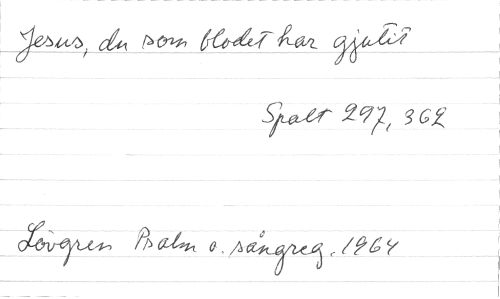 Jesus, du som blodet har gjutit
Spalt 297, 362
Lövgren Psalm o. sångreg. 1964